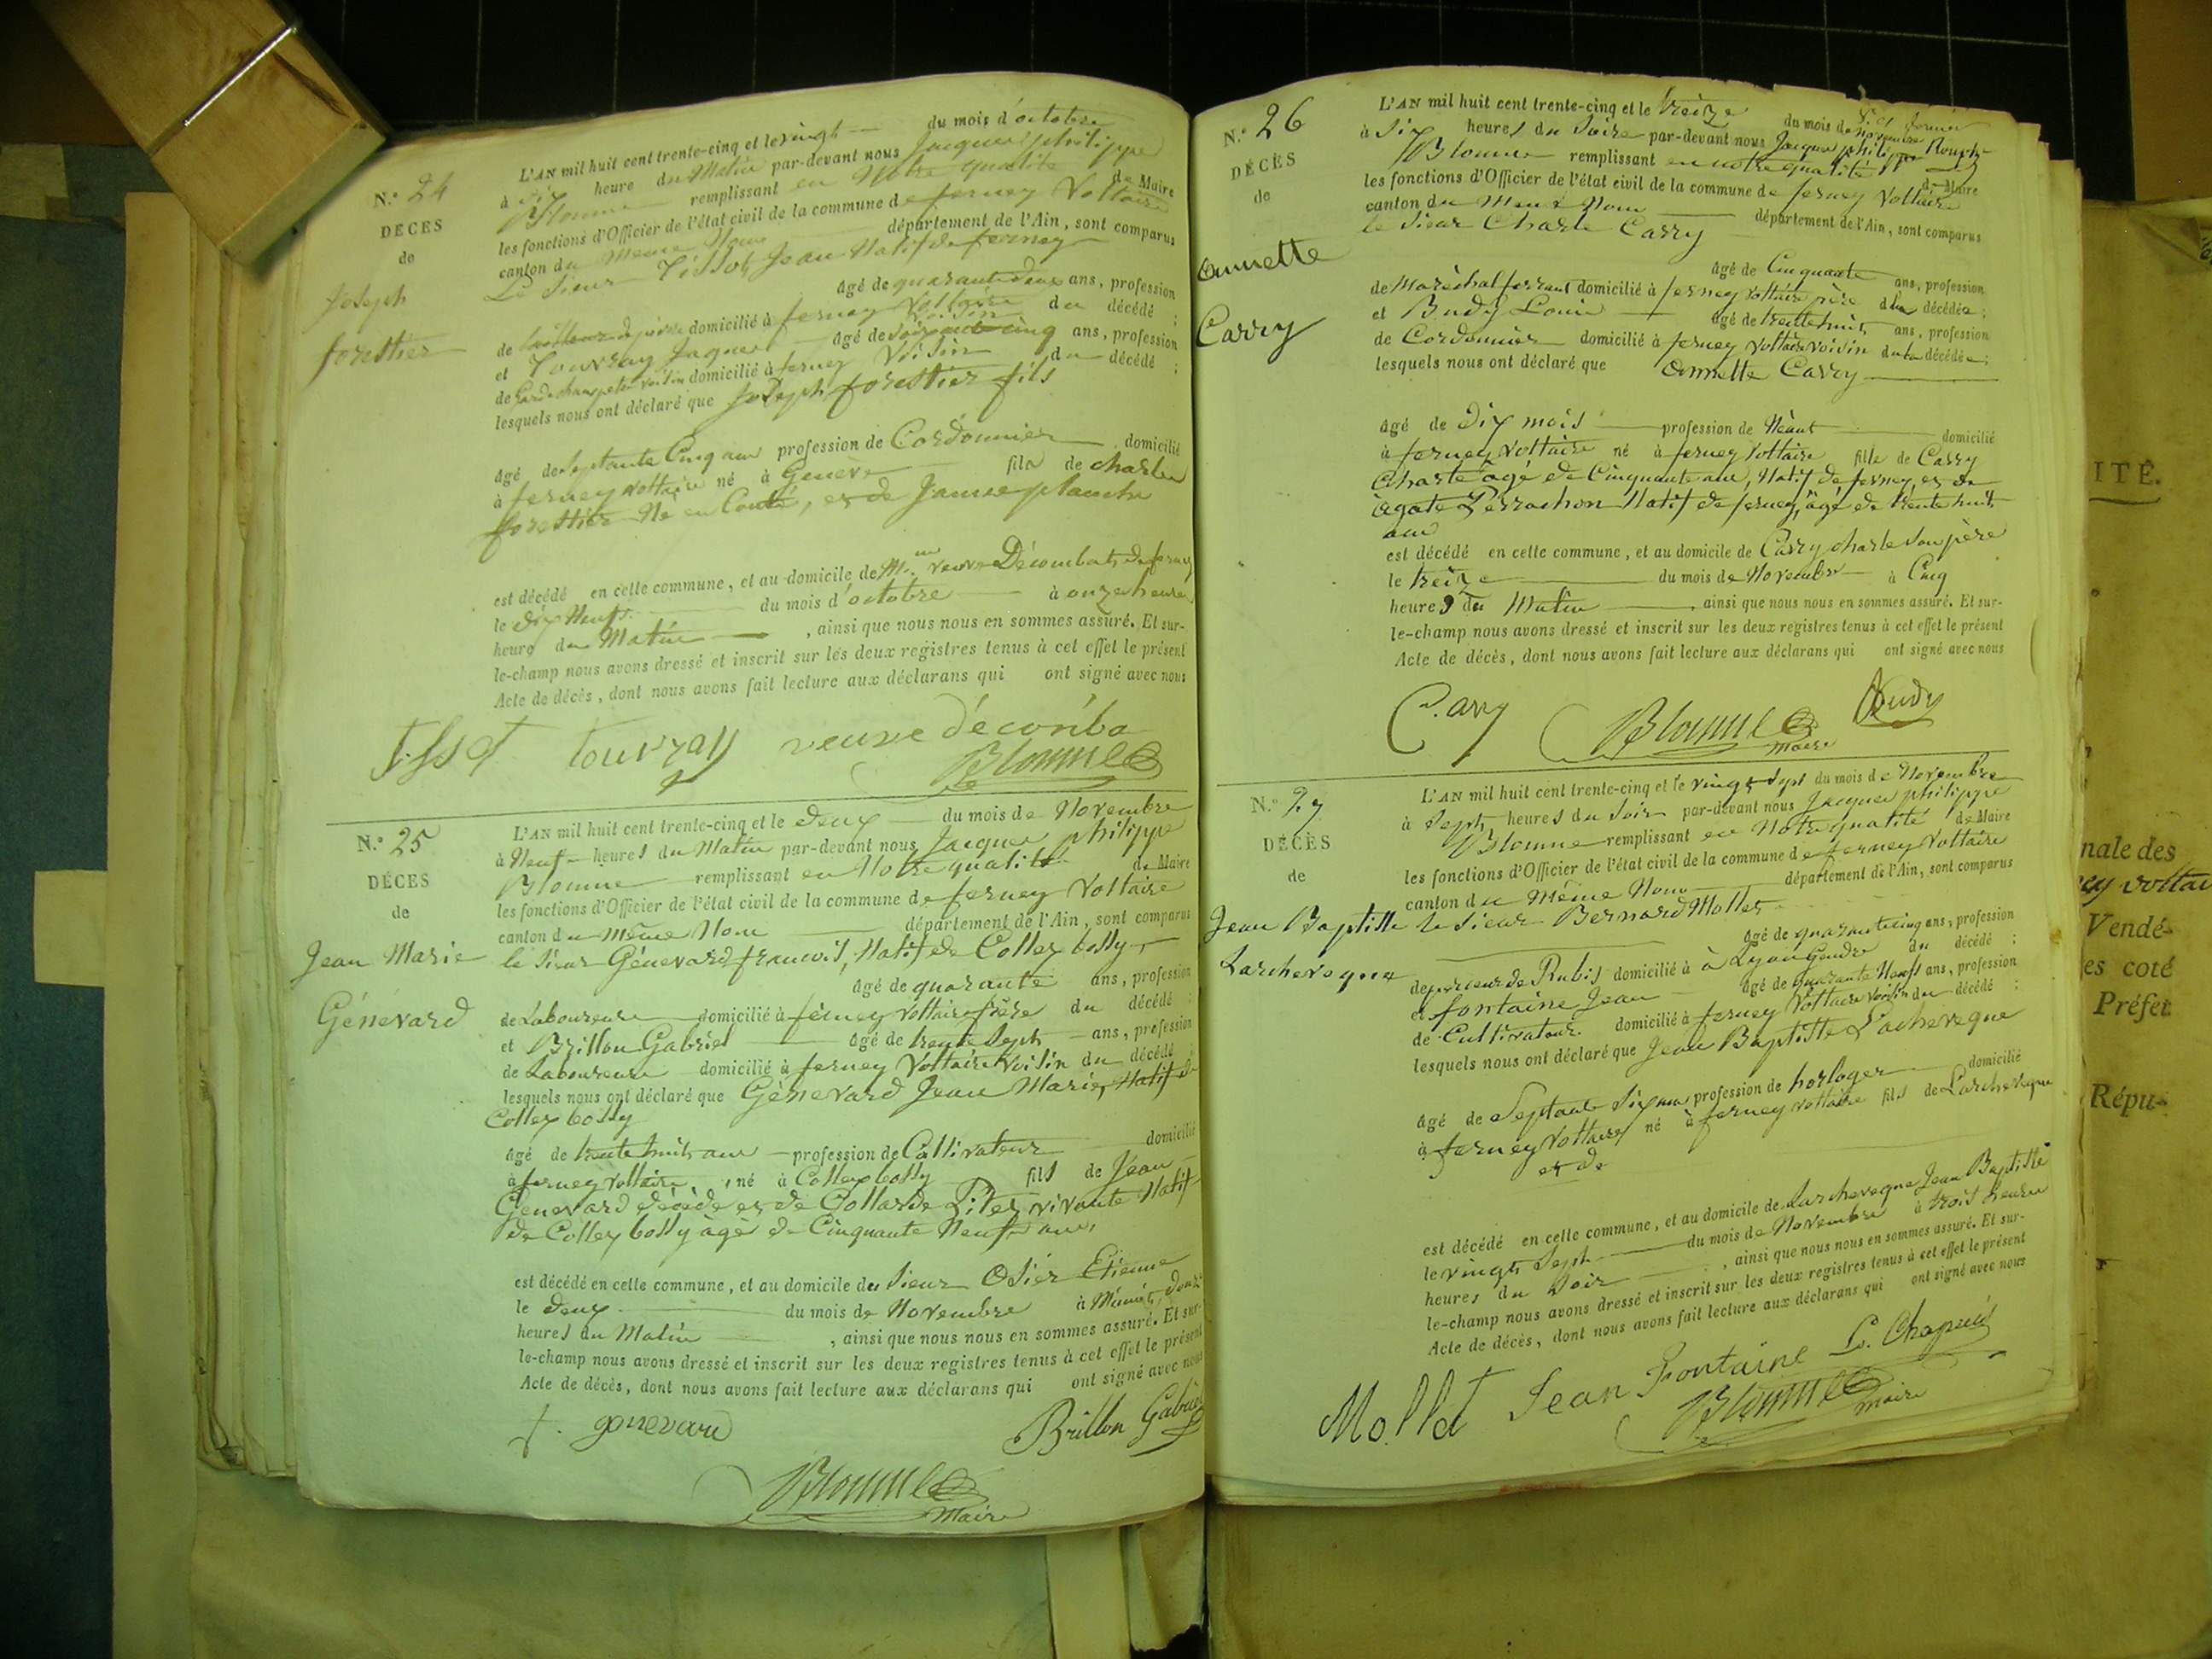 N.º 24
DÉCES
de
Joseph
forestier
L'AN mil huit cent trente-cinq et le vingt du mois d'octobre
à dix heure du Matin par-devant nous Jacques philippe
Blonne remplissant en Notre qualité de Maire
les fonctions d'Officier de l'état civil de la commune de ferney Voltaire
canton du Meme Nom département de l'Ain, sont comparus
Le Sieur Tissot Jean Natif de ferney
âgé de quarante deux ans, profession
de tailleur de pierre domicilié à ferney Voltaire Voisin du décédé ;
et Touvray Jaques âgé de soixante cinq ans, profession
de Garde champetre voisin domicilié à ferney Voisin du décédé ;
lesquels nous ont déclaré que Joseph forestier fils
âgé de septante Cinq ans profession de Cordonnier domicilié
à ferney voltaire né à Genève fils de charles
forestier Né en Comté, et de Janne planche
est décédé en cette commune, et au domicile de M.me veuve Décombat de ferney
le dix Neuf du mois d'octobre à onze heures
heure du Matin , ainsi que nous nous en sommes assuré. Et sur-
le-champ nous avons dressé et inscrit sur les deux registres tenus à cet effet le présent
Acte de décès, dont nous avons fait lecture aux déclarans qui ont signé avec nous
tissot touvray veuve décomba
Blonne
N.º 25
DÉCES
de
Jean Marie
Génévard
L'AN mil huit cent trente-cinq et le deux du mois de Novembre
à Neuf heures du Matin par-devant nous Jacques philippe
Blonne remplissant en Notre qualité de Maire
les fonctions d'Officier de l'état civil de la commune de ferney Voltaire
canton du même Nom département de l'Ain, sont comparus
le Sieur Génévard francois, Natif de Collex bossy
âgé de quarante ans, profession
de Laboureur domicilié à ferney Voltaire frère du décédé ;
et Brillon Gabriel âgé de trente sept ans, profession
de Laboureur domicilié à ferney Voltaire Voisin du décédé
lesquels nous ont déclaré que Génevard Jean Marie, Natif de
Collex bossy
âgé de trente huit ans profession de Cultivateur domicilié
à ferney voltaire, né à Collex bossy fils de Jean
Genevard décédé et de Collarde Pitex vivante Natif
de Collex bossy âgé de Cinquante Neuf ans,
est décédé en cette commune, et au domicile du Sieur Odier Etienne
le deux du mois de Novembre à Minuit douze
heures du Matin , ainsi que nous nous en sommes assuré. Et sur-
le-champ nous avons dressé et inscrit sur les deux registres tenus à cet effet le présent
Acte de décès, dont nous avons fait lecture aux déclarans qui ont signé avec nous
f. genevard Brillon Gabriel
Blonne
Maire
N.º 26
DÉCÈS
de
Annette
Carry
L'AN mil huit cent trente-cinq et le treize du mois de novembre
à six heures du Soire par-devant nous Jacques philippe
Blonne remplissant en notre qualité de Maire
les fonctions d'Officier de l'état civil de la commune de ferney Voltaire
canton du Meme Nom département de l'Ain, sont comparus
le Sieur Charle Carry
âgé de Cinquante ans, profession
de Maréchal ferrant domicilié à ferney voltaire père de la décédée ;
et Budy Louis âgé de trente huit ans, profession
de Cordonnier domicilié à ferney voltaire voisin de la décédée ;
lesquels nous ont déclaré que Annette Carry
âgé de Dix mois profession de Néant domicilié
à ferney Voltaire né à ferney Voltaire fille de Carry
Charle âgé de Cinquante ans, Natif de ferney, et de
agate Perrachon Natif de ferney, âgé de trente huit
ans
est décédé en cette commune, et au domicile de Carry charle son père
le treize du mois de Novembre à Cinq
heures du Matin , ainsi que nous nous en sommes assuré. Et sur-
le-champ nous avons dressé et inscrit sur les deux registres tenus à cet effet le présent
Acte de décès, dont nous avons fait lecture aux déclarans qui ont signé avec nous
C. arry Blonne Budy
Maire
N.º 27
DÉCÈS
de
Jean Baptiste
Larcheveque
L'AN mil huit cent trente-cinq et le vingt sept du mois de Novembre
à Sept heures du Soir par-devant nous Jacques philippe
Blonne remplissant en Notre qualité de Maire
les fonctions d'Officier de l'état civil de la commune de ferney Voltaire
canton du Même Nom département de l'Ain, sont comparus
le Sieur Bernard Mollet
âgé de quarante cinq ans, profession
de perceur de Rubis domicilié à à Lyon Gendre du décédé ;
et fontaine Jean âgé de quarante Neuf ans, profession
de Cultivateur domicilié à ferney Voltaire voisin du décédé ;
lesquels nous ont déclaré que Jean Baptiste L'acheveque
âgé de Septante Six ans profession de horloger domicilié
à ferney Voltaire né à ferney voltaire fils de Larcheveque
et de
est décédé en cette commune, et au domicile de Larcheveque Jean Baptiste
le vingt Sept du mois de Novembre à trois heures
heures du Soir , ainsi que nous nous en sommes assuré. Et sur-
le-champ nous avons dressé et inscrit sur les deux registres tenus à cet effet le présent
Acte de décès, dont nous avons fait lecture aux déclarans qui ont signé avec nous
Mollet Jean Fontaine L. Chapuis
Blonne
Maire
ITÉ.
nale des
ey voltai
Vendé-
es coté
Préfet
Répu-